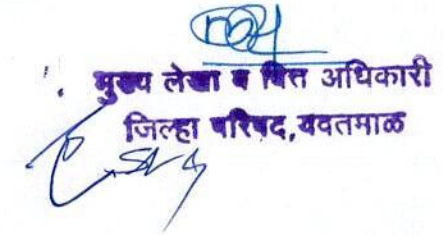 मुख्य लेखा व वित्त अधिकारी
जिल्हा परिषद, यवतमाळ